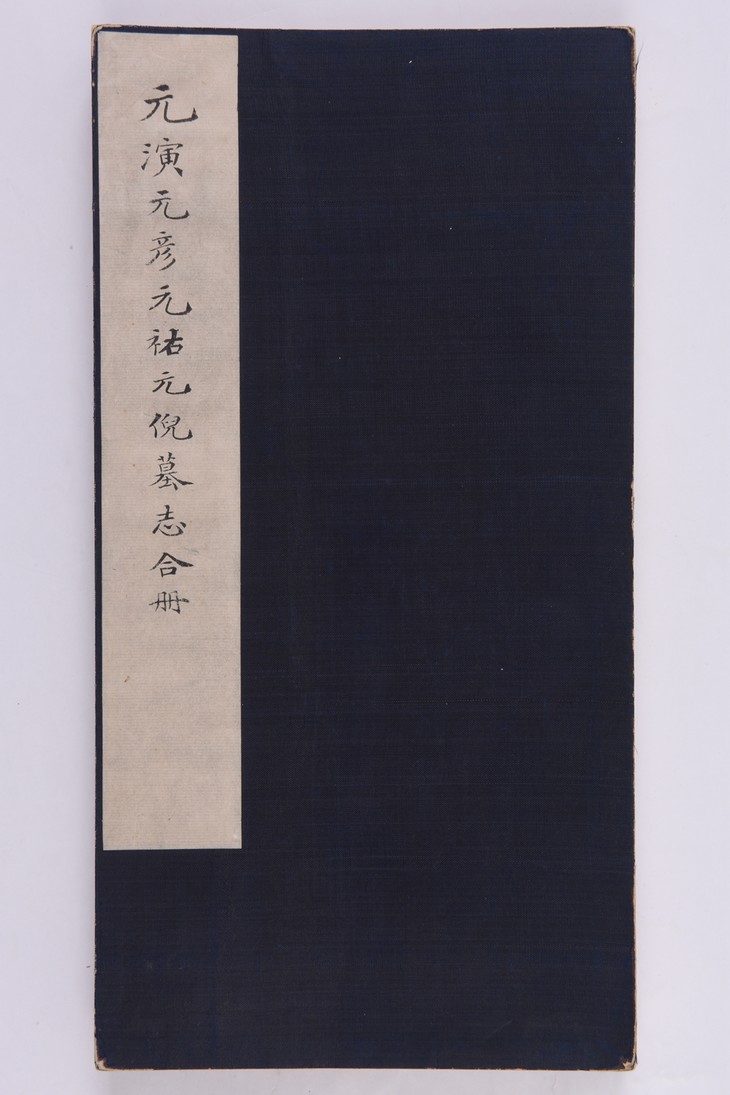 元演元彦元祐元倪墓志合册